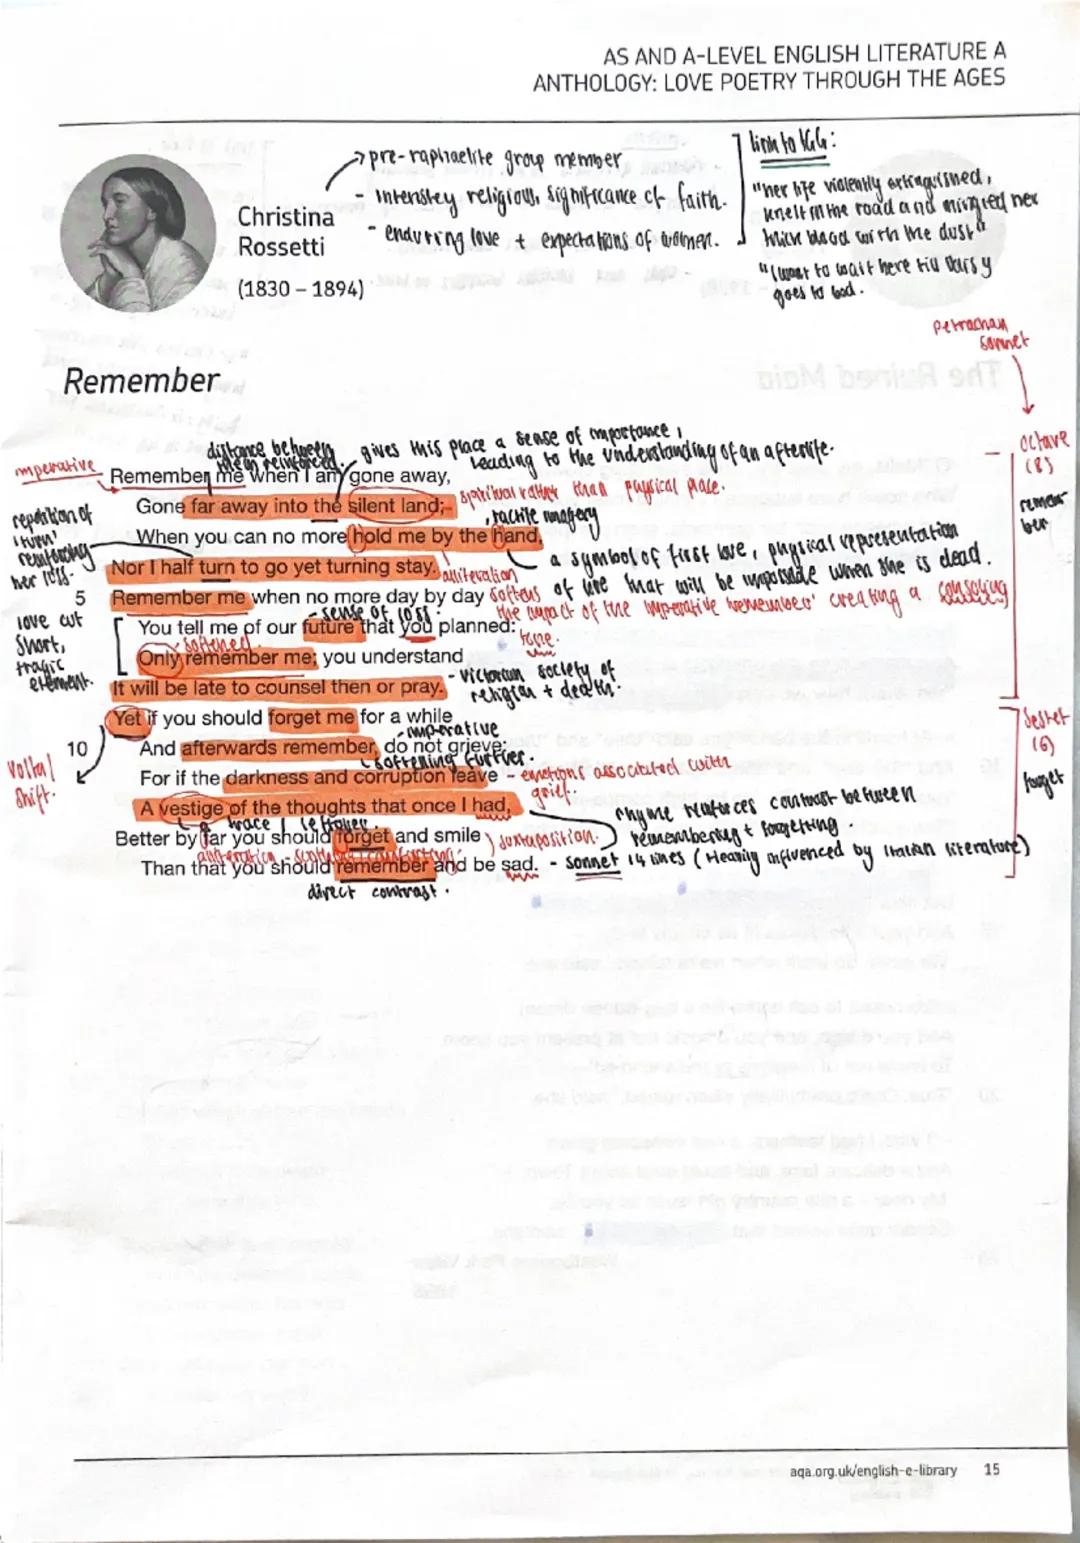 AS AND A-LEVEL ENGLISH LITERATURE A
ANTHOLOGY: LOVE POETRY THROUGH THE AGES
Christina
Rossetti
(1830 – 1894)
pre-raphaelite group member
- Intensley religious, significance of faith.
- enduring love + expectations of women.
link to TGG:
"her life violently extinguished,
knelt in the road and mingled her
thick blood with the dust"
"I want to wait here till Daisy
goes to bed.
Petrachan
sonnet
Remember
octave
(8)
remem
ber
distance between
them reinforced.
gives this place a sense of importance,
leading to the understanding of an afterlife.
imperative
Remember me when I am gone away,
Gone far away into the silent land;
spiritual rather than physical place.
tactile imagery
repetition of
'turn'
reinforcing
her loss.
When you can no more hold me by the hand,
a symbol of first love, physical representation
Nor I half turn to go yet turning stay.
alliteration
of love that will be impossible when she is dead.
5
Remember me when no more day by day
softens
the impact of the imperative 'remember' creating a consoling
tone.
- sense of loss.
love cut
short,
tragic
element.
You tell me of our future that you planned:
softened
Only remember me; you understand
- Victorian society of
religion + death.
It will be late to counsel then or pray.
Yet if you should forget me for a while
- imperative
10
And afterwards remember, do not grieve:
softening further.
Volta/
shift.
For if the darkness and corruption leave
- emotions associated with
grief.
A vestige of the thoughts that once I had,
a trace
rhyme reinforces contrast between
remembering + forgetting.
Better by far you should forget and smile
juxtaposition.
alliteration - soothing/comforting.
Than that you should remember and be sad.
- sonnet 14 lines (Heavily influenced by Italian literature)
direct contrast.
Sestet
(6)
forget
aqa.org.uk/english-e-library
15